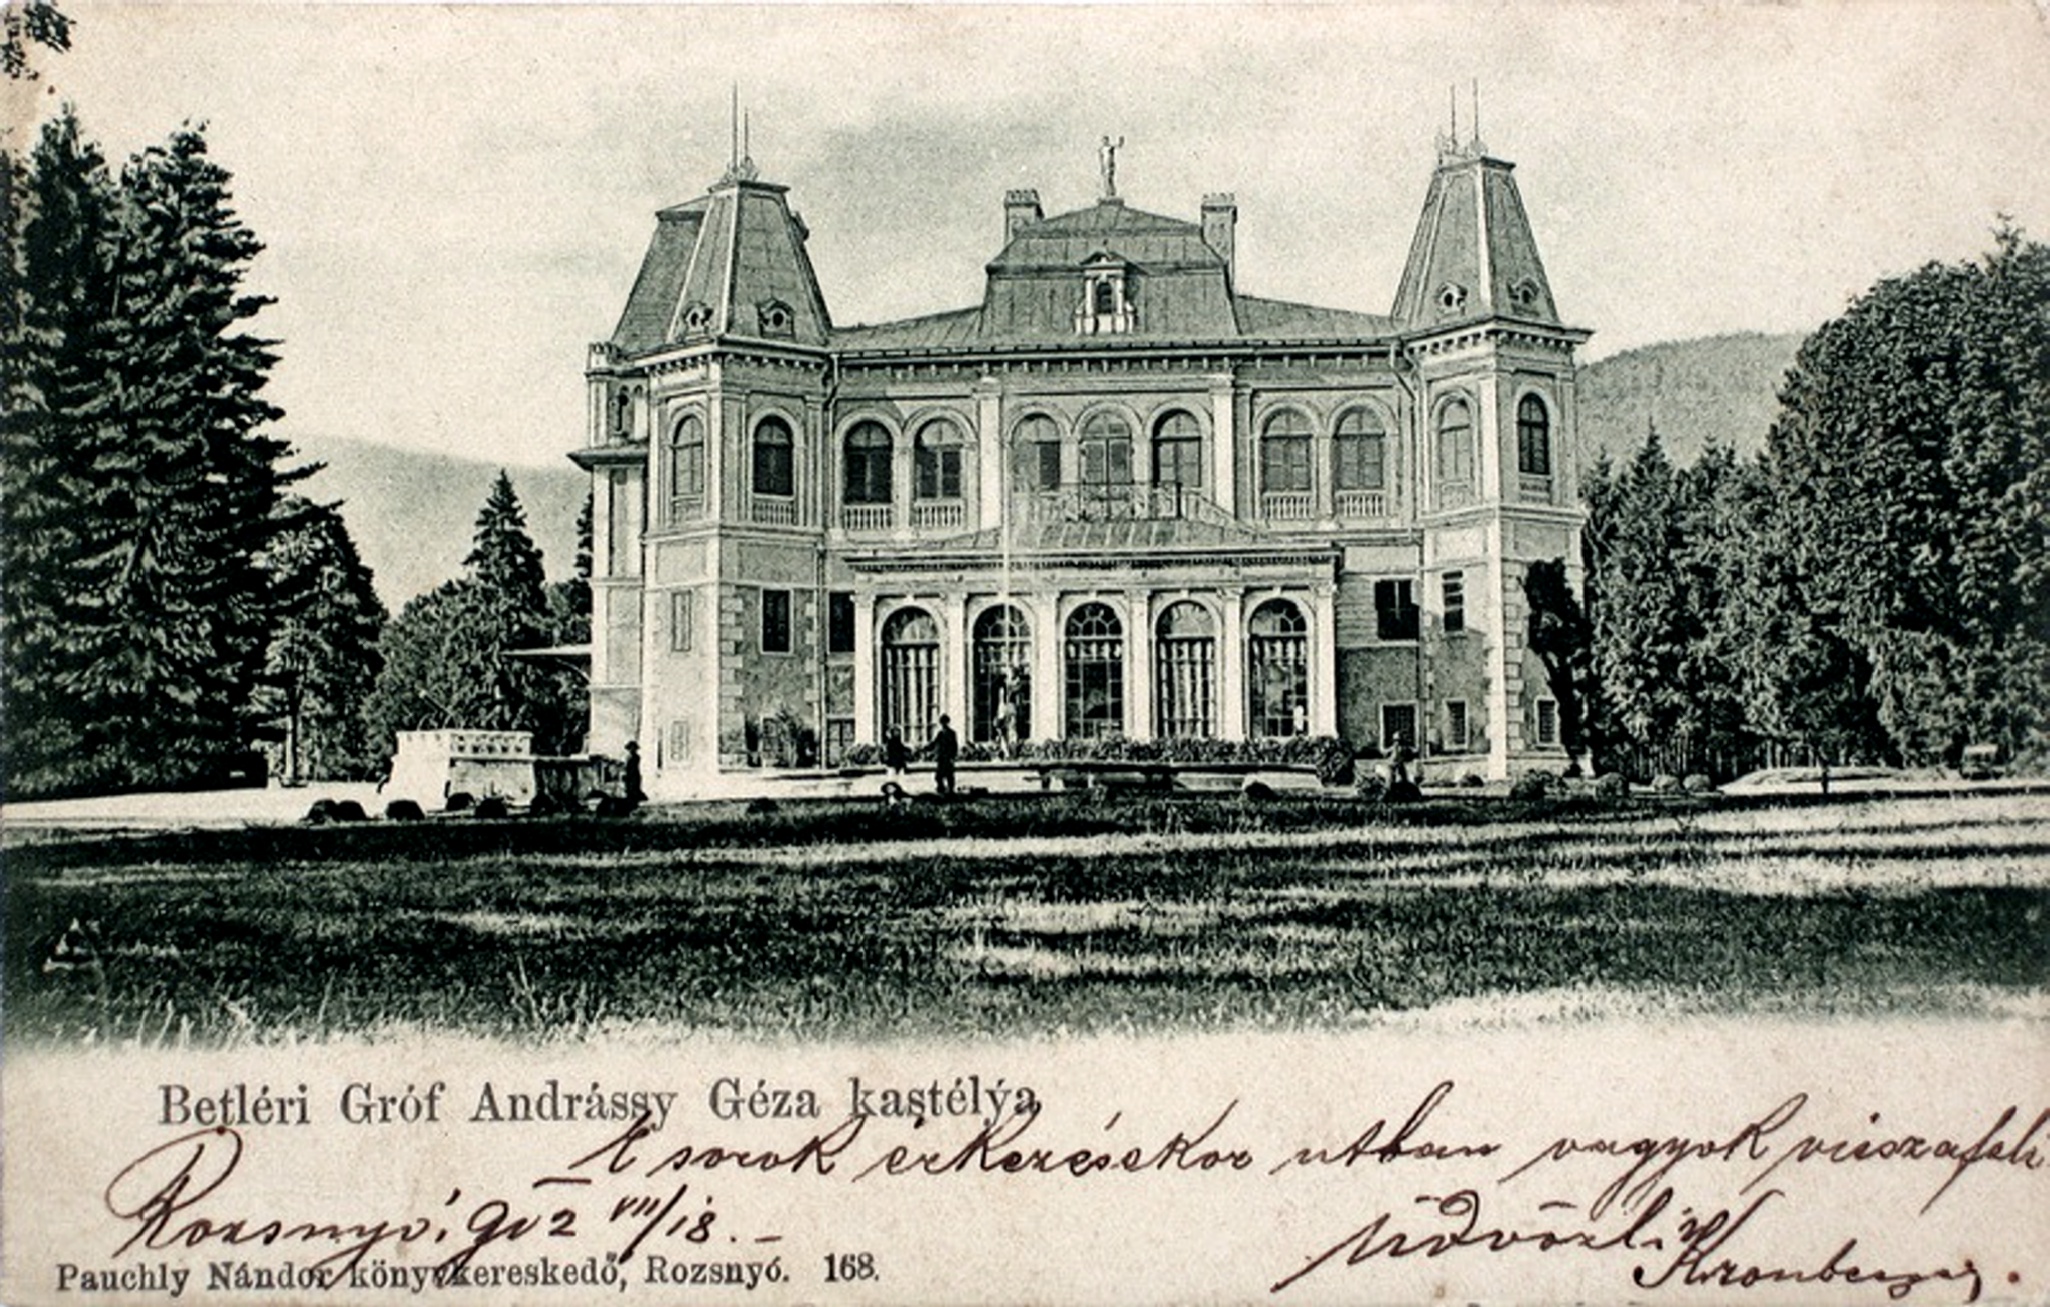 Betléri Gróf Andrássy Géza kastélya
E sorok érkezésekor utban vagyok visszafelé
Rozsnyó, 902 VII/18.
Üdvözli
Pauchly Nándor könyvkereskedő, Rozsnyó. 168.